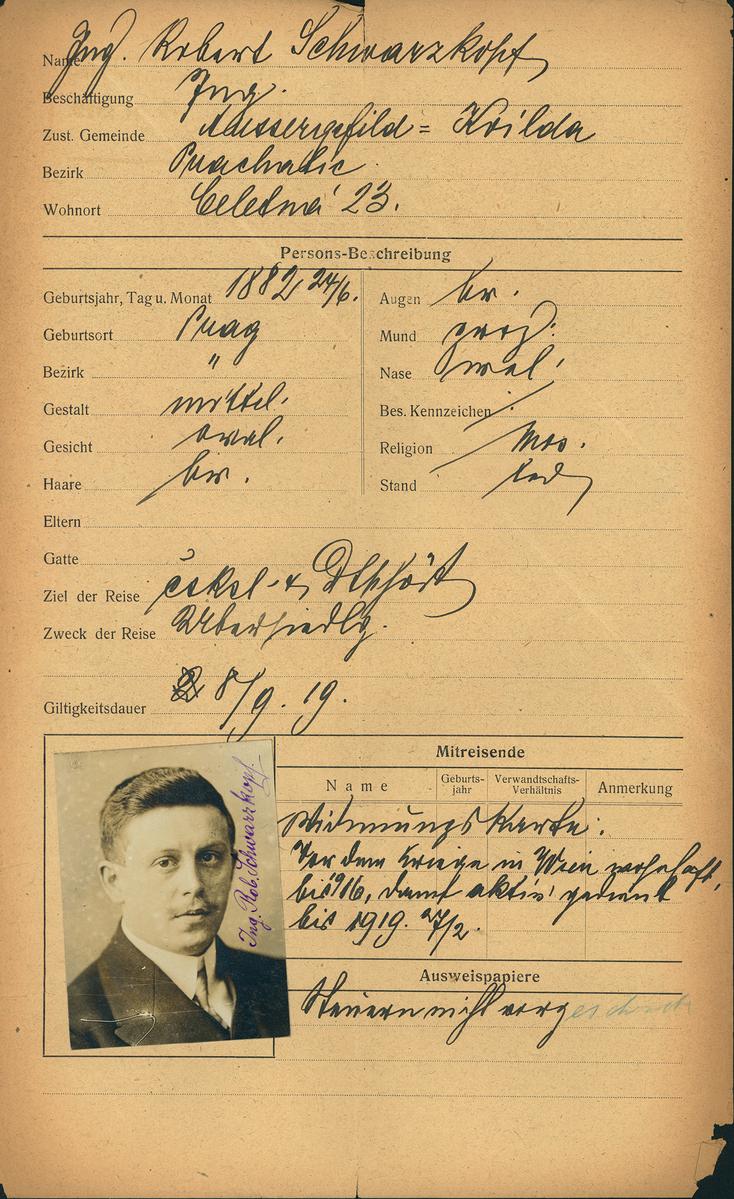 Name Ing. Robert Schwarzkopf
Beschäftigung Ing.
Zust. Gemeinde Aussergefild = Kvilda
Bezirk Prachatic
Wohnort Celetná 23.
Persons-Beschreibung
Geburtsjahr, Tag u. Monat 1882 24/6.
Geburtsort Prag
Bezirk "
Gestalt mittel.
Gesicht oval.
Haare br.
Augen br.
Mund prop.
Nase
Bes. Kennzeichen
Religion mos.
Stand led
Eltern
Gatte
Ziel der Reise čeksl. &
Zweck der Reise Übersiedlg.
Giltigkeitsdauer 8/9. 19.
Ing. Rob. Schwarzkopf
Mitreisende
Name Geburts-jahr Verwandtschafts-Verhältnis Anmerkung
Widmungskarte.
Vor dem Kriege in Wien wohnhaft,
bis 1916, dann aktiv gedient
bis 1919. 27/2.
Ausweispapiere
Steuern nicht vorgeschrieb